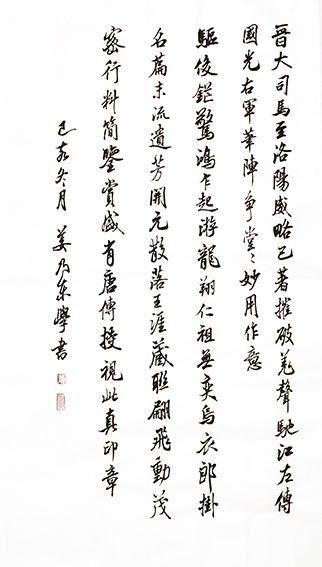 晉大司馬至洛陽威略已著摧破羌聲馳江左傳
國光右軍筆陣爭堂〻妙用作意
驅俊鋩驚鴻乍起游龍翔仁祖無奕烏衣郎掛
名篇末流遺芳開元散落王涯藏聯翩飛動茂
密行料簡鑒賞盛有唐傳授視此真印章
己亥冬月 姜乃東學書